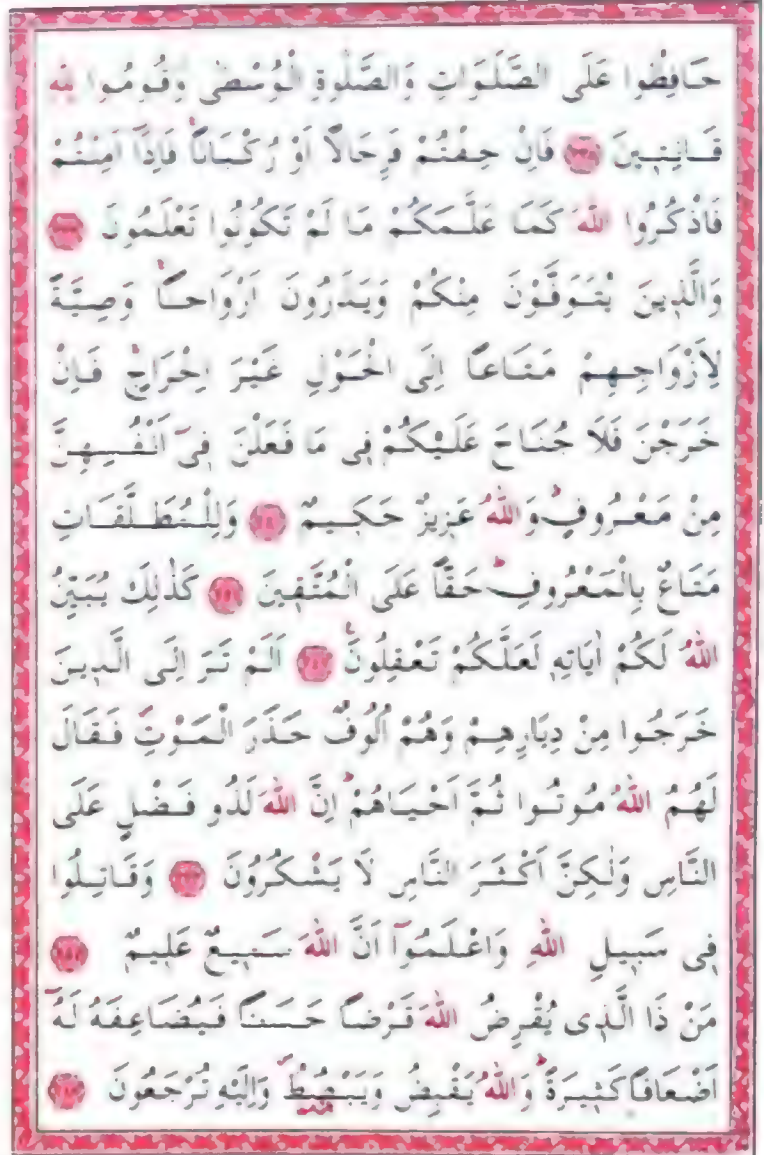 حَافِظُوا عَلَى الصَّلَوَاتِ وَالصَّلٰوةِ الْوُسْطٰى وَقُومُوا لِلّٰهِ
قَانِتٖينَ ﴿٢٣٨﴾ فَاِنْ خِفْتُمْ فَرِجَالًا اَوْ رُكْبَانًاۚ فَاِذَٓا اَمِنْتُمْ
فَاذْكُرُوا اللّٰهَ كَمَا عَلَّمَكُمْ مَا لَمْ تَكُونُوا تَعْلَمُونَ ﴿٢٣٩﴾
وَالَّذٖينَ يُتَوَفَّوْنَ مِنْكُمْ وَيَذَرُونَ اَزْوَاجًاۚ وَصِيَّةً
لِاَزْوَاجِهِمْ مَتَاعًا اِلَى الْحَوْلِ غَيْرَ اِخْرَاجٍۚ فَاِنْ
خَرَجْنَ فَلَا جُنَاحَ عَلَيْكُمْ فٖى مَا فَعَلْنَ فٖٓى اَنْفُسِهِنَّ
مِنْ مَعْرُوفٍؕ وَاللّٰهُ عَزٖيزٌ حَكٖيمٌ ﴿٢٤٠﴾ وَلِلْمُطَلَّقَاتِ
مَتَاعٌ بِالْمَعْرُوفِؕ حَقًّا عَلَى الْمُتَّقٖينَ ﴿٢٤١﴾ كَذٰلِكَ يُبَيِّنُ
اللّٰهُ لَكُمْ اٰيَاتِهٖ لَعَلَّكُمْ تَعْقِلُونَ ﴿٢٤٢﴾ اَلَمْ تَرَ اِلَى الَّذٖينَ
خَرَجُوا مِنْ دِيَارِهِمْ وَهُمْ اُلُوفٌ حَذَرَ الْمَوْتِ فَقَالَ
لَهُمُ اللّٰهُ مُوتُوا ثُمَّ اَحْيَاهُمْؕ اِنَّ اللّٰهَ لَذُو فَضْلٍ عَلَى
النَّاسِ وَلٰكِنَّ اَكْثَرَ النَّاسِ لَا يَشْكُرُونَ ﴿٢٤٣﴾ وَقَاتِلُوا
فٖى سَبٖيلِ اللّٰهِ وَاعْلَمُٓوا اَنَّ اللّٰهَ سَمٖيعٌ عَلٖيمٌ ﴿٢٤٤﴾
مَنْ ذَا الَّذٖى يُقْرِضُ اللّٰهَ قَرْضًا حَسَنًا فَيُضَاعِفَهُ لَهُٓ
اَضْعَافًا كَثٖيرَةًؕ وَاللّٰهُ يَقْبِضُ وَيَبْصُۣطُࣕ وَاِلَيْهِ تُرْجَعُونَ ﴿٢٤٥﴾